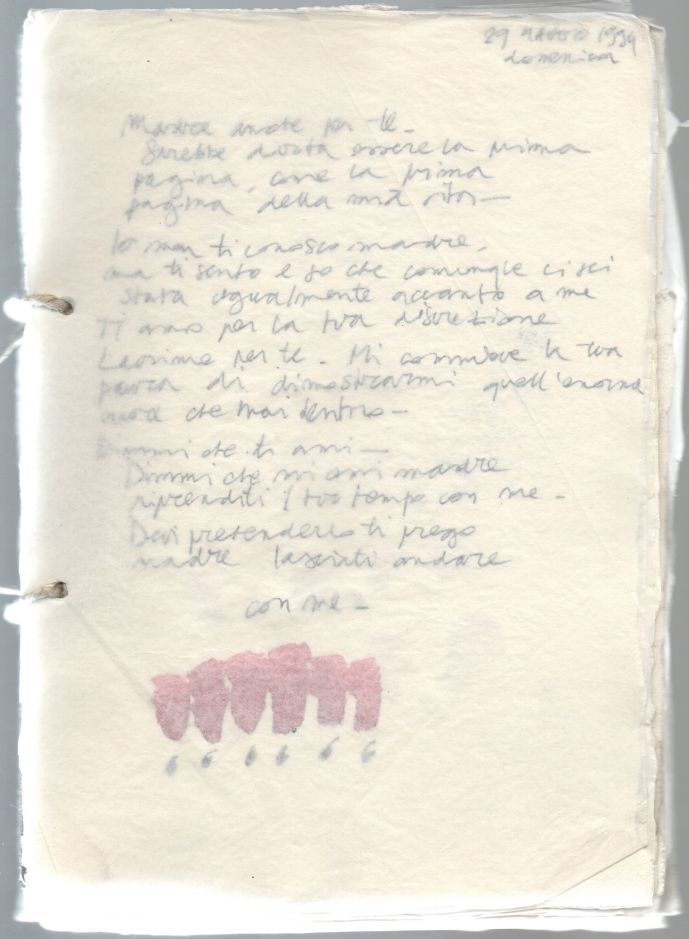 29 MAGGIO 1994
domenica
Madre anche per te_
Sarebbe dovuta essere la prima
pagina, come la prima
pagina della mia vita_
Io non ti conosco madre,
ma ti sento e so che comunque ci sei
stata ugualmente accanto a me
Ti amo per la tua discrezione
Lacrime per te_ Mi commuove la tua
paura di dimostrarmi quell'enorme
che hai dentro_
Dimmi che ti ami_
Dimmi che mi ami madre
riprenditi il tuo tempo con me_
Devi pretenderlo ti prego
madre lasciati andare
con me_
6 6 6 6 6 6